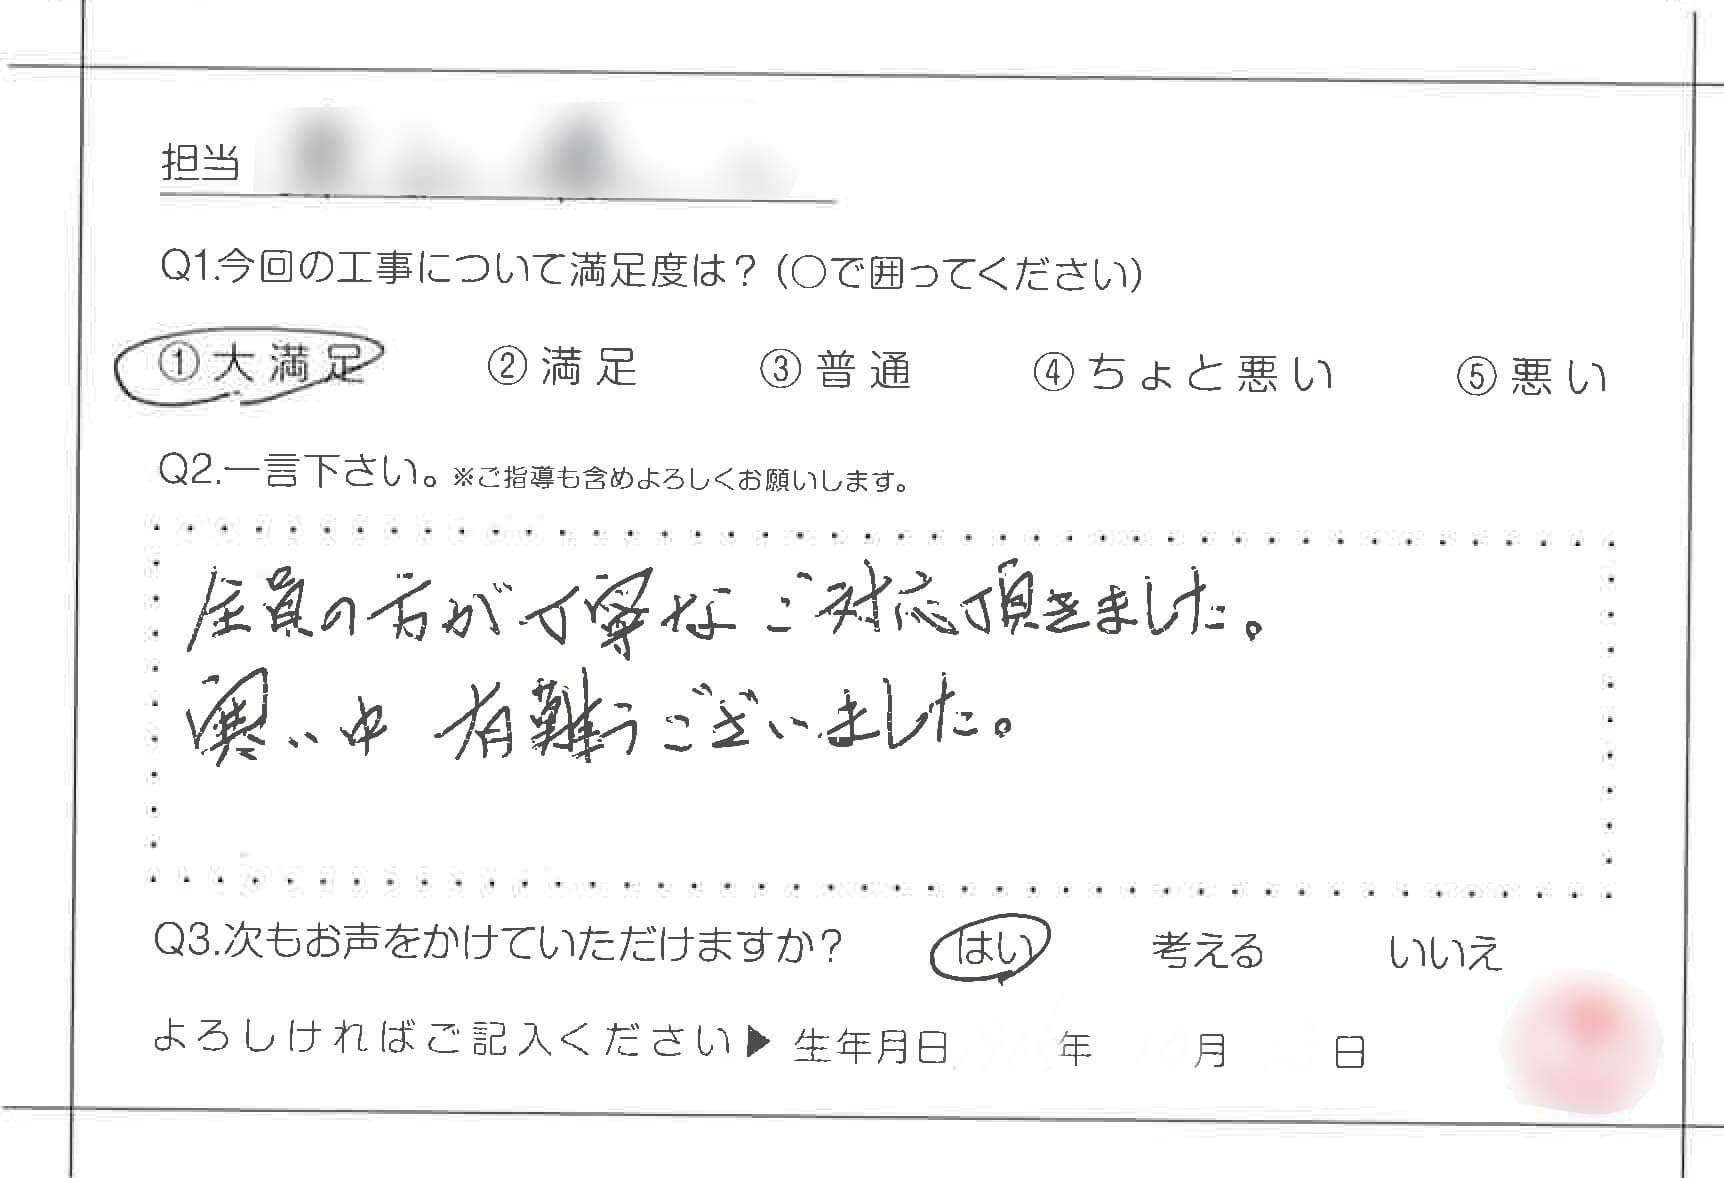 担当
Q1.今回の工事について満足度は？（○で囲ってください）
①大満足 ②満足 ③普通 ④ちょと悪い ⑤悪い
Q2.一言下さい。※ご指導も含めよろしくお願いします。
全員の方が丁寧なご対応頂きました。
寒い中 有難うございました。
Q3.次もお声をかけていただけますか？ はい 考える いいえ
よろしければご記入ください▶ 生年月日 年 月 日